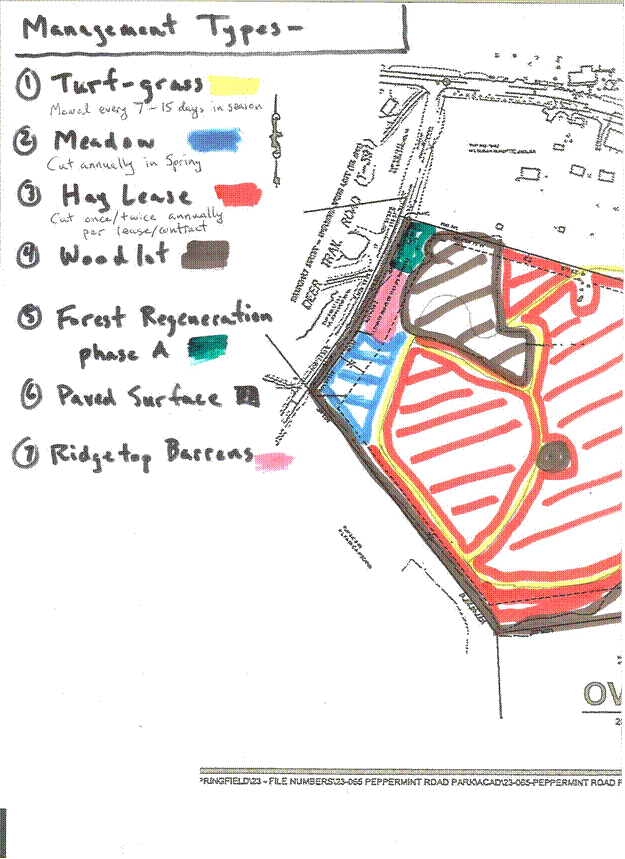 Management Types-
① Turf-grass
Mowed every 7-15 days in season
② Meadow
Cut annually in Spring
③ Hay Lease
Cut once/twice annually
per lease/contract
④ Woodlot
⑤ Forest Regeneration
phase A
⑥ Paved Surface
⑦ Ridgetop Barrens
DEER TRAIL ROAD
OV
PRINGFIELD\23 - FILE NUMBERS\23-065 PEPPERMINT ROAD PARK\ACAD\23-065-PEPPERMINT ROAD P